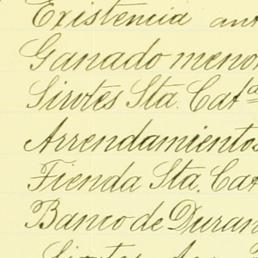 Existencia ant
Ganado menor
Sirvtes Sta. Catª
Arrendamientos
Tienda Sta. Cat
Banco de Duran